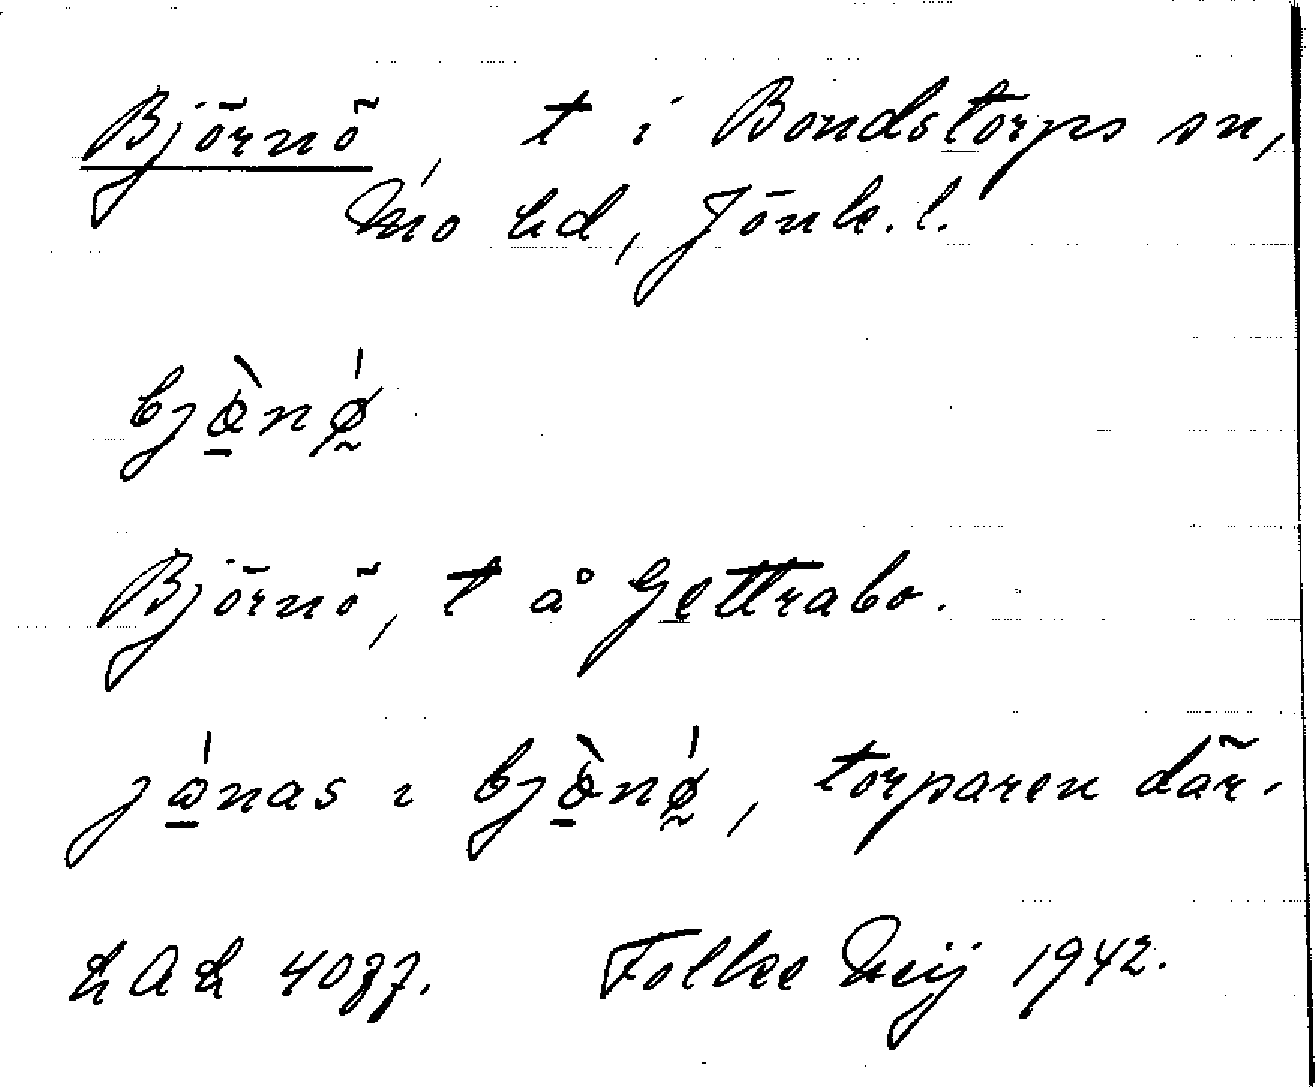 Björnö, t i Bondstorps sn,
Mo hd, Jönk. l.
bjö̀nǿ
Björnö, t å Gettrabo.
jónas i bjö̀nǿ, torparen där.
Folke Meij 1942.